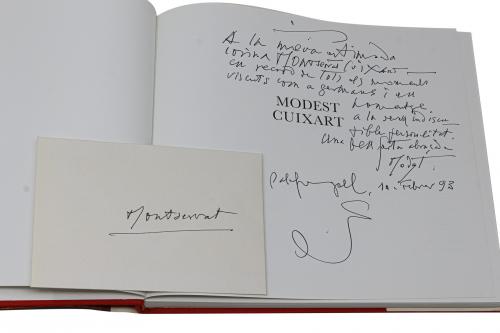 A la meva estimada
cosina Montserrat Cuixart
en record de tots els moments
viscuts com a germans i en
homenatge
MODEST
CUIXART
a la seva indiscu
tible personalitat.
una forta abraçada
Modest
Palafrugell, Febrer 93
Montserrat